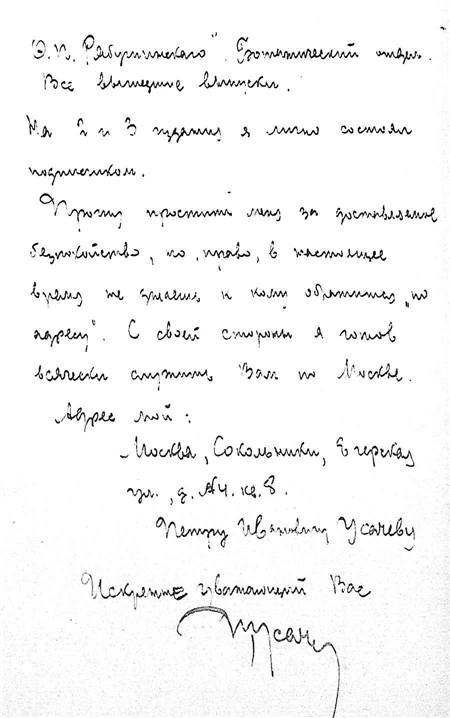 Э. П. Рябушинского". Ботанический отдел.
Все вышедшие выпуски.
На 2 и 3 издания я лично состоял
подписчиком.
Прошу простить меня за доставляемое
безпокойство, но, право, в настоящее
время не знаешь к кому обратиться „по
адресу". С своей стороны я готов
всячески служить Вам по Москве.
Адрес мой:
Москва, Сокольники, Егерская
ул., д. №4. кв. 8.
Петру Ивановичу Усачеву
Искренне уважающий Вас
ПУсачев